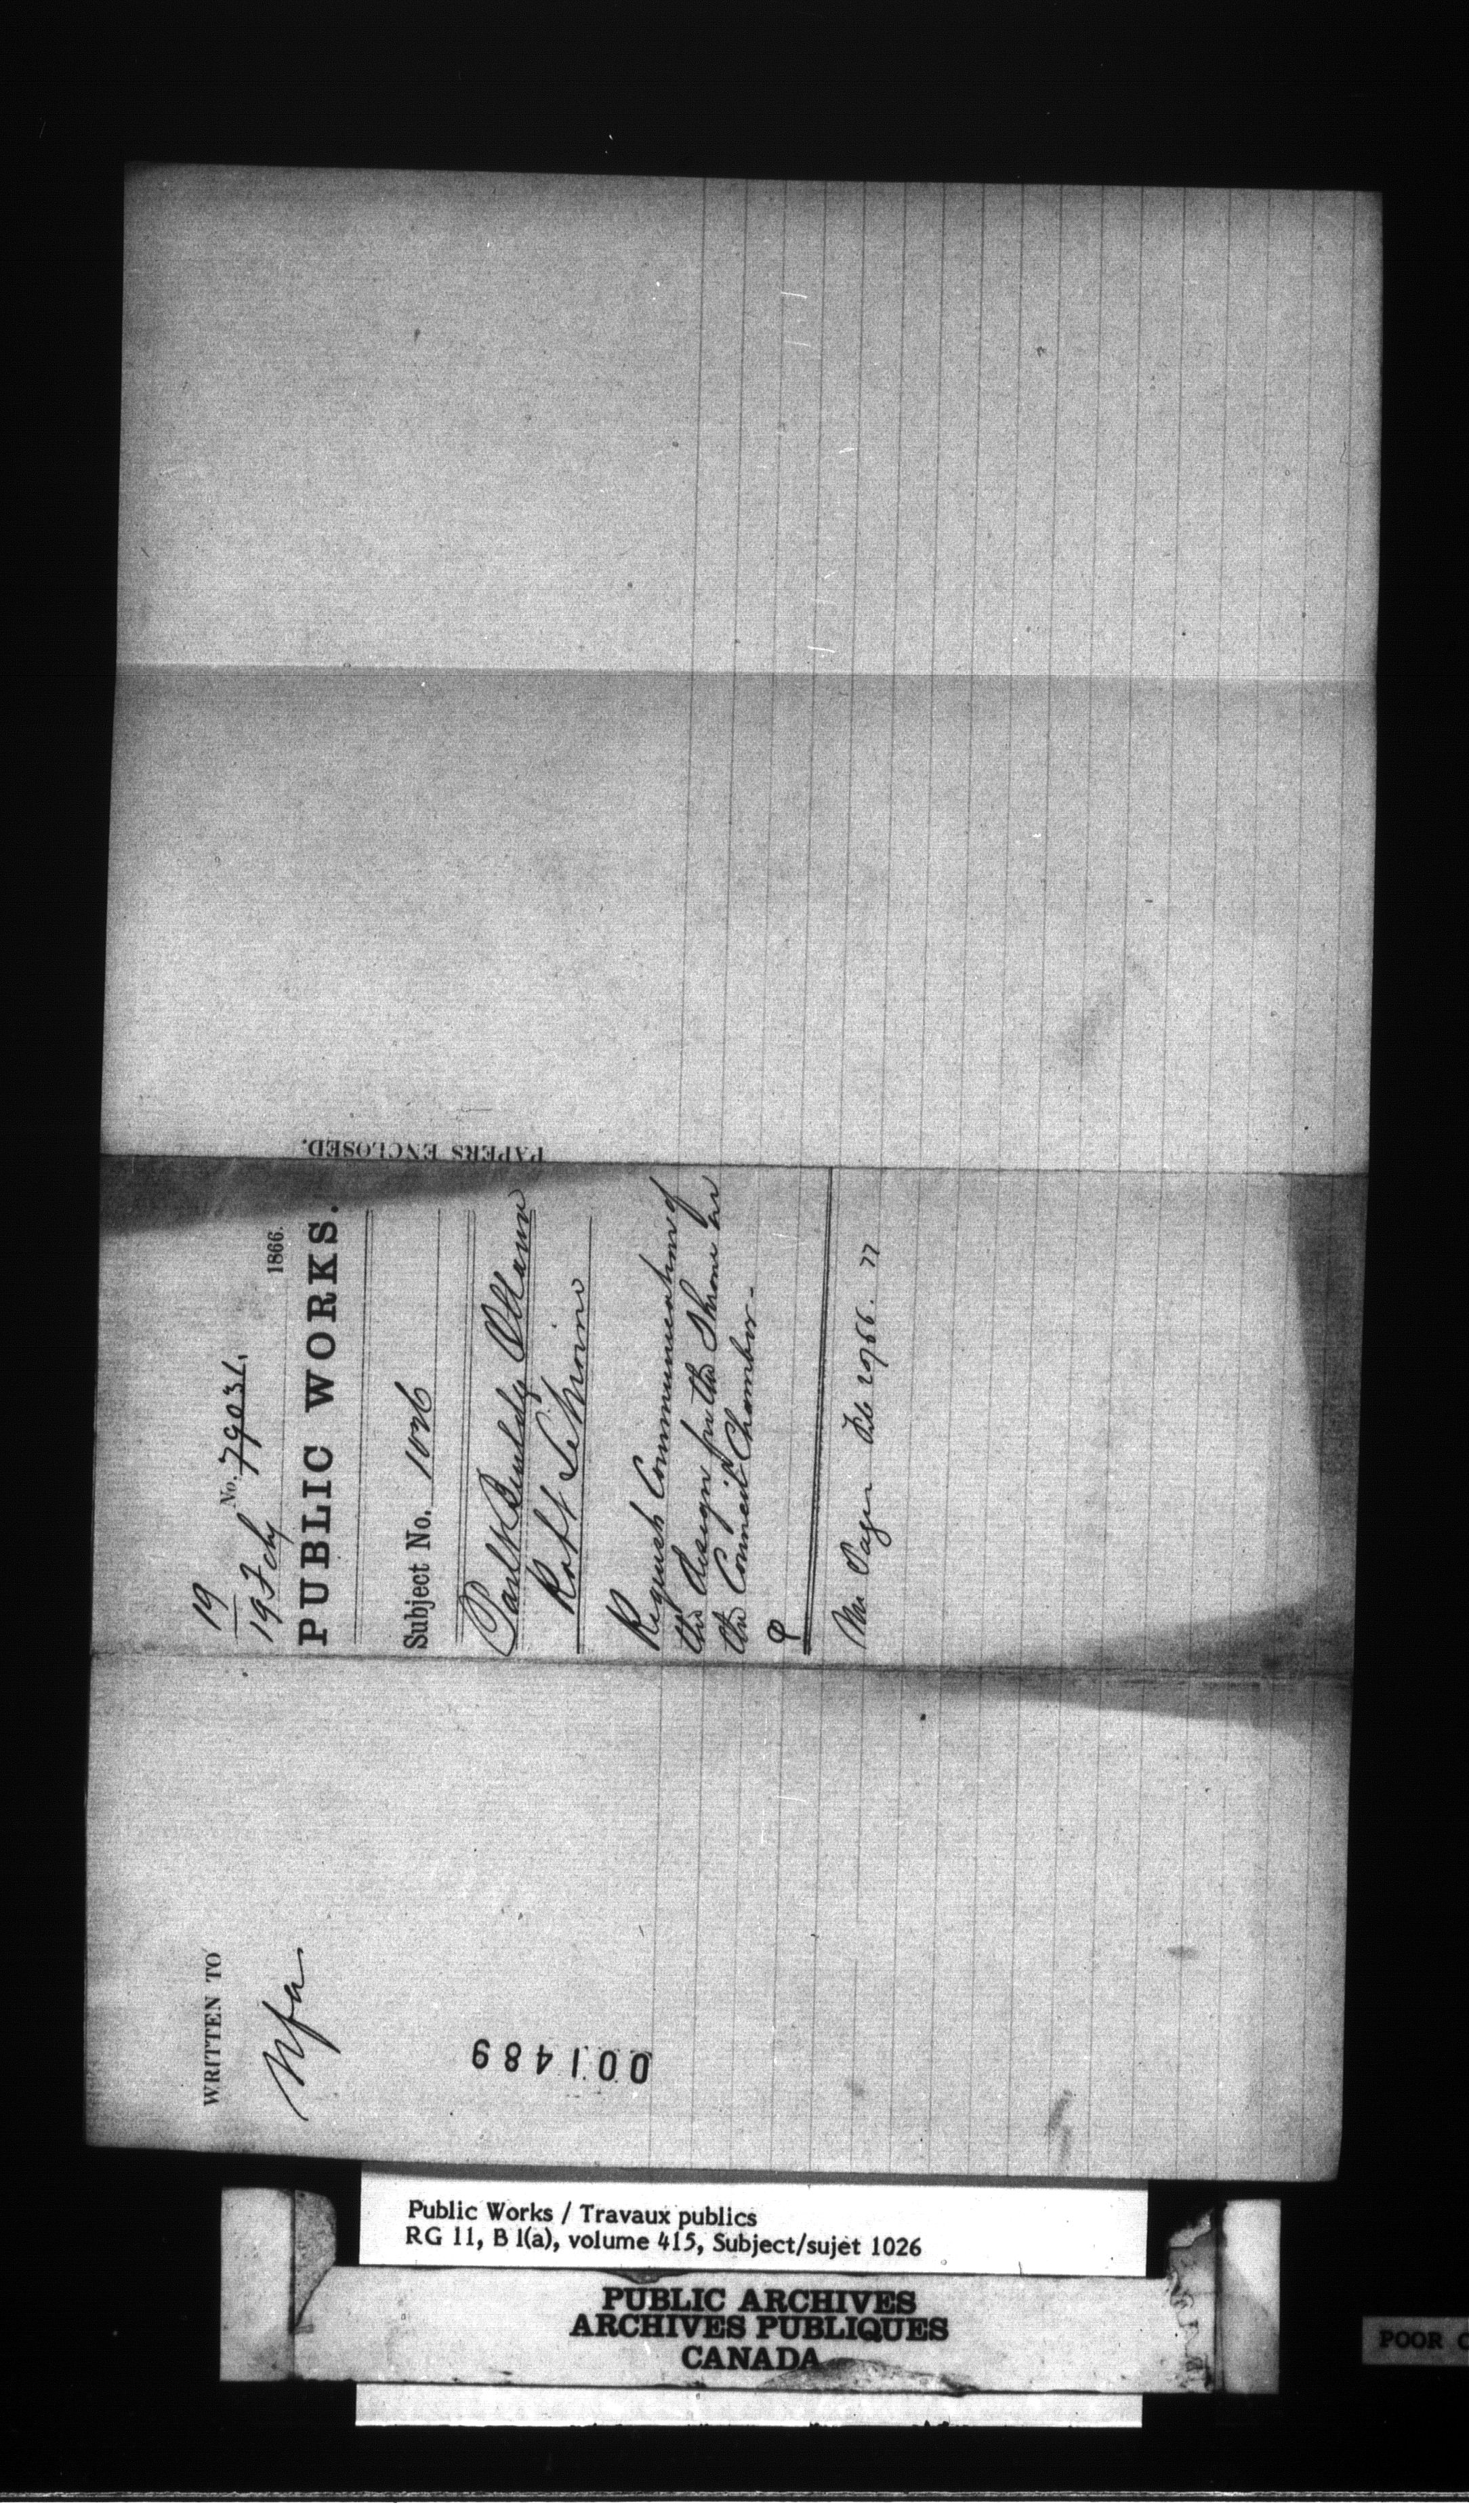 19
No. 79031.
19 Feby 1866.
PUBLIC WORKS.
Subject No. 1026
Parlt Buildgs Ottawa
Robt LeMoine
Request Communication of
the design for the Throne in
the Council Chamber.
Mr Page
PAPERS ENCLOSED.
WRITTEN TO
Nfa
001489
Public Works / Travaux publics
RG 11, B 1(a), volume 415, Subject/sujet 1026
PUBLIC ARCHIVES
ARCHIVES PUBLIQUES
CANADA
POOR